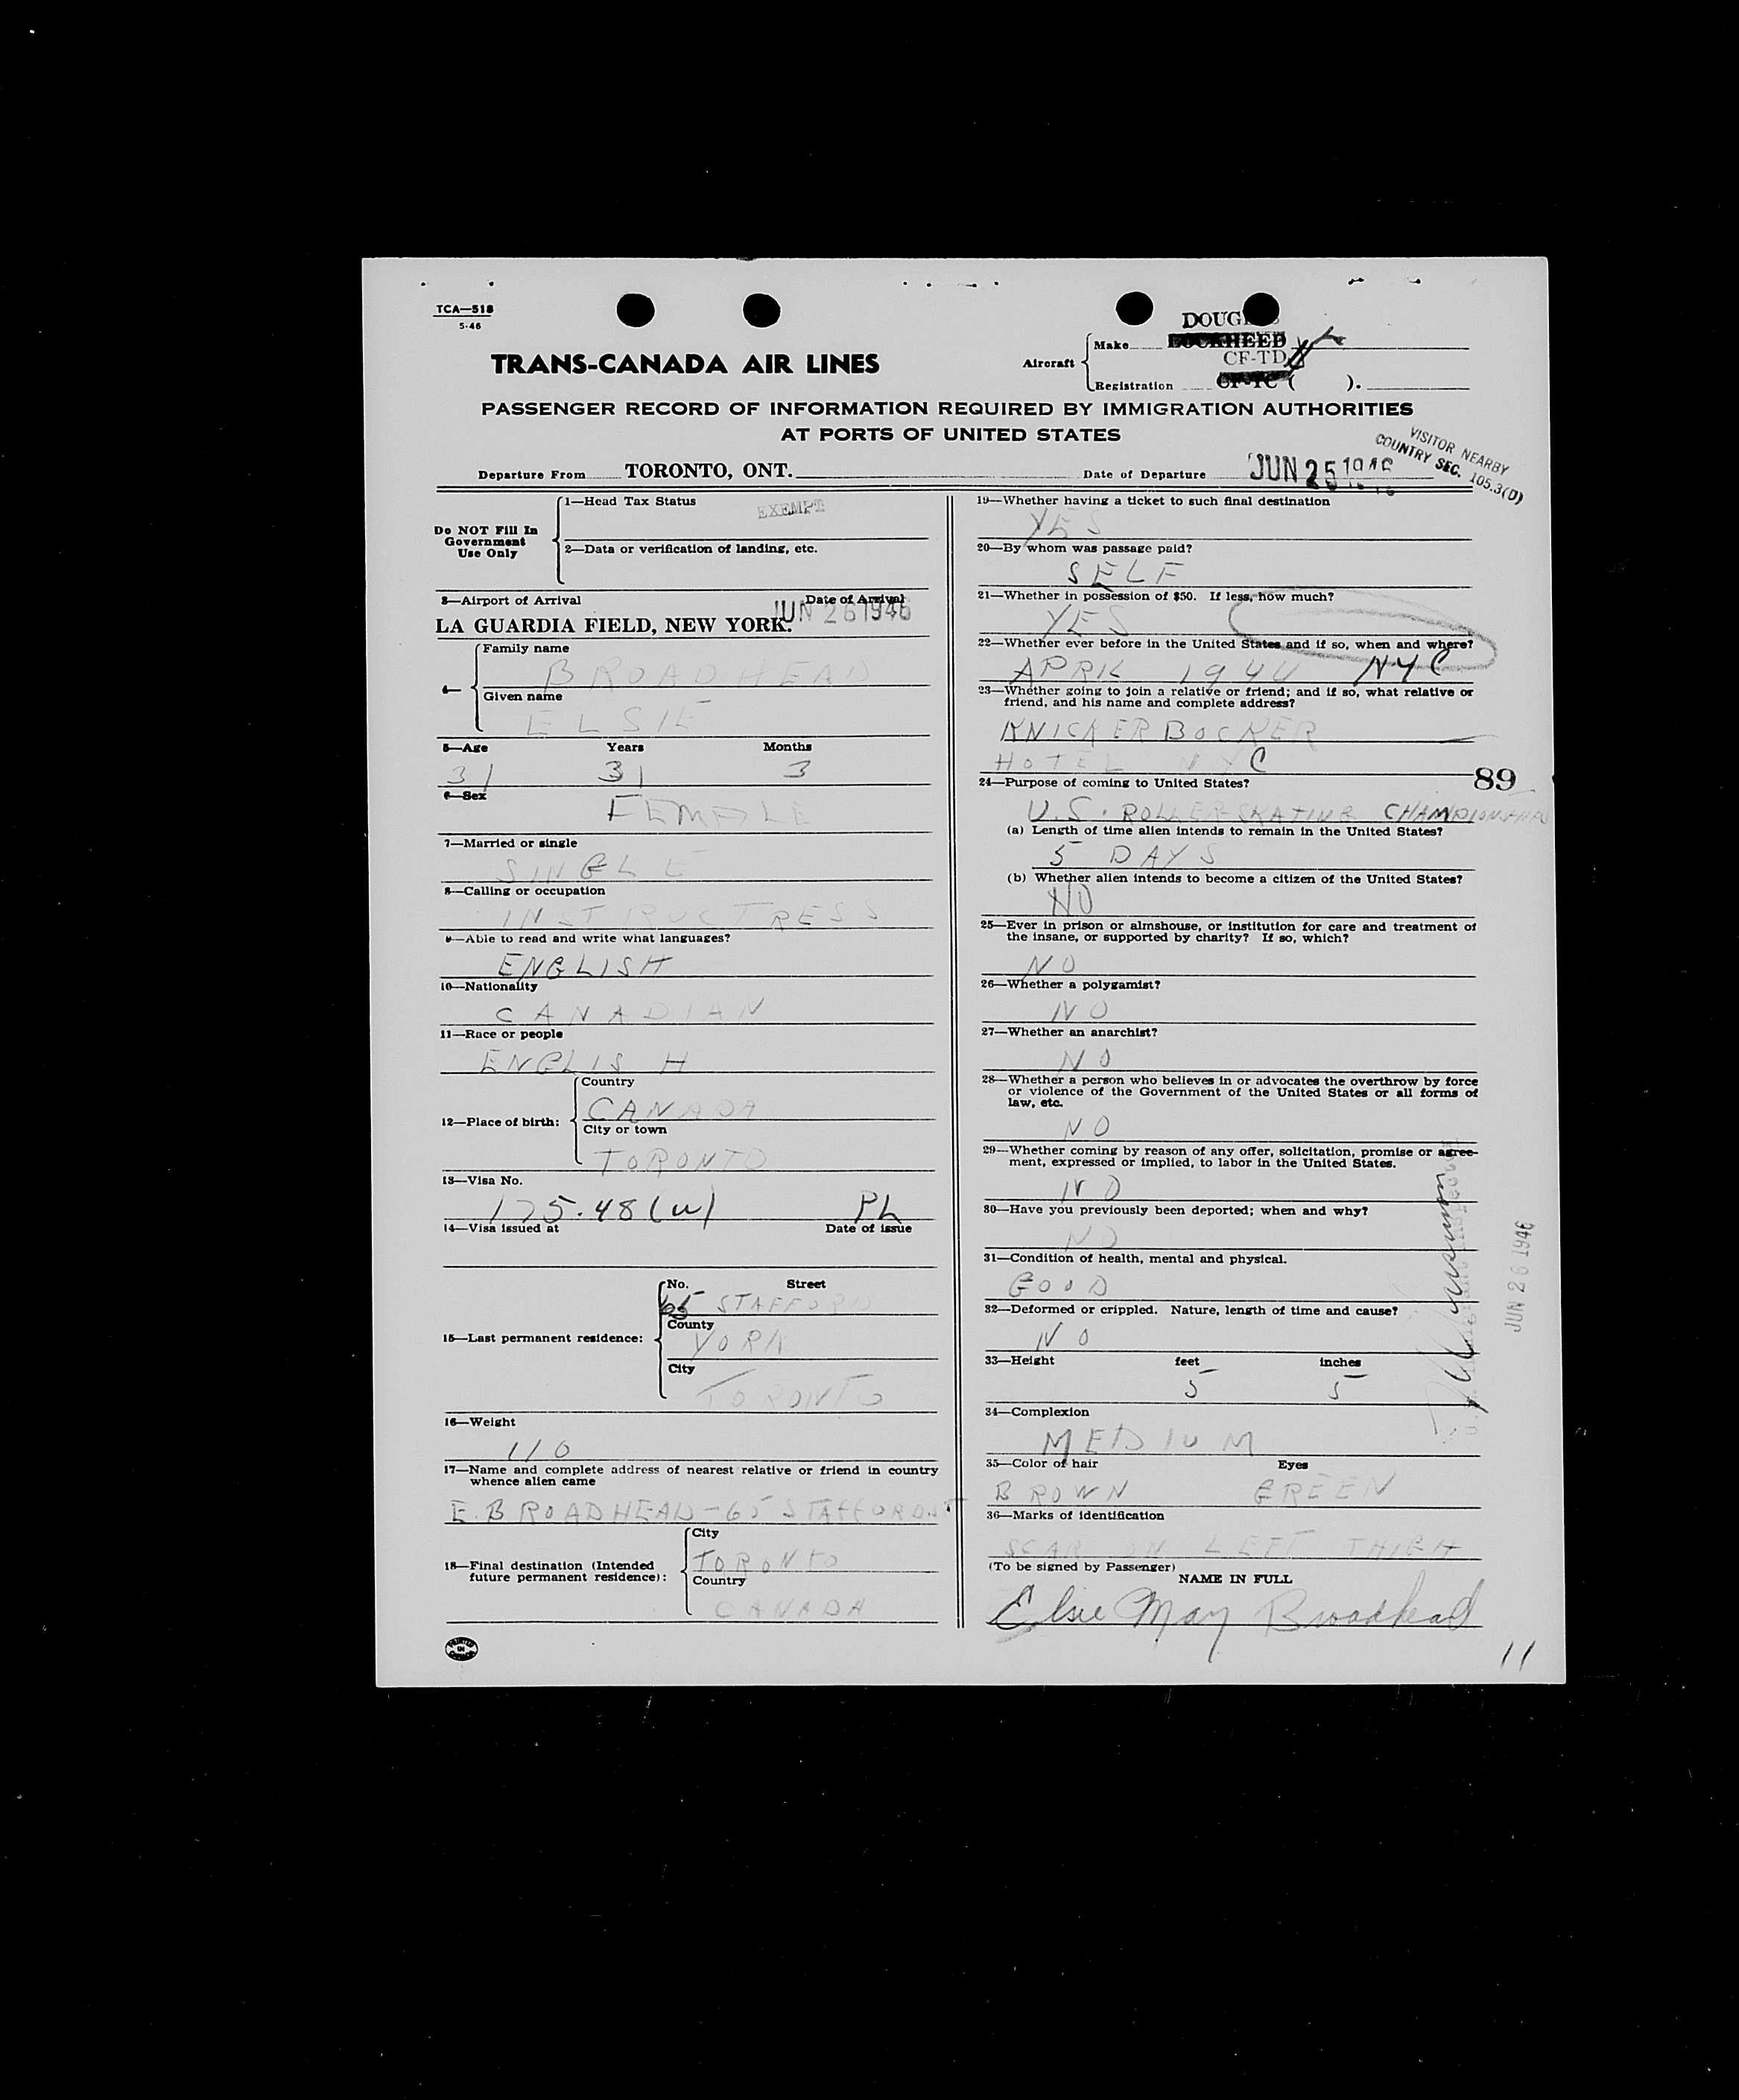 TCA—518
5-46
DOUG
LOCKHEED
TRANS-CANADA AIR LINES
Aircraft
Make
CF-TD
Registration CF-TC ( ).
PASSENGER RECORD OF INFORMATION REQUIRED BY IMMIGRATION AUTHORITIES
AT PORTS OF UNITED STATES
VISITOR NEARBY
COUNTRY SEC. 105.3(D)
Departure From TORONTO, ONT. Date of Departure JUN 25 1946
Do NOT Fill In
Government
Use Only
1—Head Tax Status EXEMPT
2—Data or verification of landing, etc.
3—Airport of Arrival Date of Arrival
LA GUARDIA FIELD, NEW YORK. JUN 26 1946
4—
Family name
BROADHEAD
Given name
ELSIE
5—Age Years Months
31 31 3
6—Sex
FEMALE
7—Married or single
SINGLE
8—Calling or occupation
INSTRUCTRESS
9—Able to read and write what languages?
ENGLISH
10—Nationality
CANADIAN
11—Race or people
ENGLISH
12—Place of birth:
Country
CANADA
City or town
TORONTO
13—Visa No.
175.48(w) PL
14—Visa issued at Date of issue
15—Last permanent residence:
No. Street
65 STAFFORD
County
YORK
City
TORONTO
16—Weight
110
17—Name and complete address of nearest relative or friend in country
whence alien came
E. BROADHEAD—65 STAFFORD ST
18—Final destination (Intended
future permanent residence):
City
TORONTO
Country
CANADA
PRINTED
IN
CANADA
19—Whether having a ticket to such final destination
YES
20—By whom was passage paid?
SELF
21—Whether in possession of $50. If less, how much?
YES
22—Whether ever before in the United States and if so, when and where?
APRIL 1944 NYC
23—Whether going to join a relative or friend; and if so, what relative or
friend, and his name and complete address?
KNICKERBOCKER
HOTEL NYC
89
24—Purpose of coming to United States?
U.S. ROLLER SKATING CHAMPIONSHIPS
(a) Length of time alien intends to remain in the United States?
5 DAYS
(b) Whether alien intends to become a citizen of the United States?
NO
25—Ever in prison or almshouse, or institution for care and treatment of
the insane, or supported by charity? If so, which?
NO
26—Whether a polygamist?
NO
27—Whether an anarchist?
NO
28—Whether a person who believes in or advocates the overthrow by force
or violence of the Government of the United States or all forms of
law, etc.
NO
29—Whether coming by reason of any offer, solicitation, promise or agree-
ment, expressed or implied, to labor in the United States.
NO
30—Have you previously been deported; when and why?
NO
31—Condition of health, mental and physical.
GOOD
32—Deformed or crippled. Nature, length of time and cause?
NO
33—Height feet inches
5 5
34—Complexion
MEDIUM
35—Color of hair Eyes
BROWN GREEN
36—Marks of identification
SCAR ON LEFT THIGH
(To be signed by Passenger)
NAME IN FULL
Elsie May Broadhead
JUN 26 1946
11